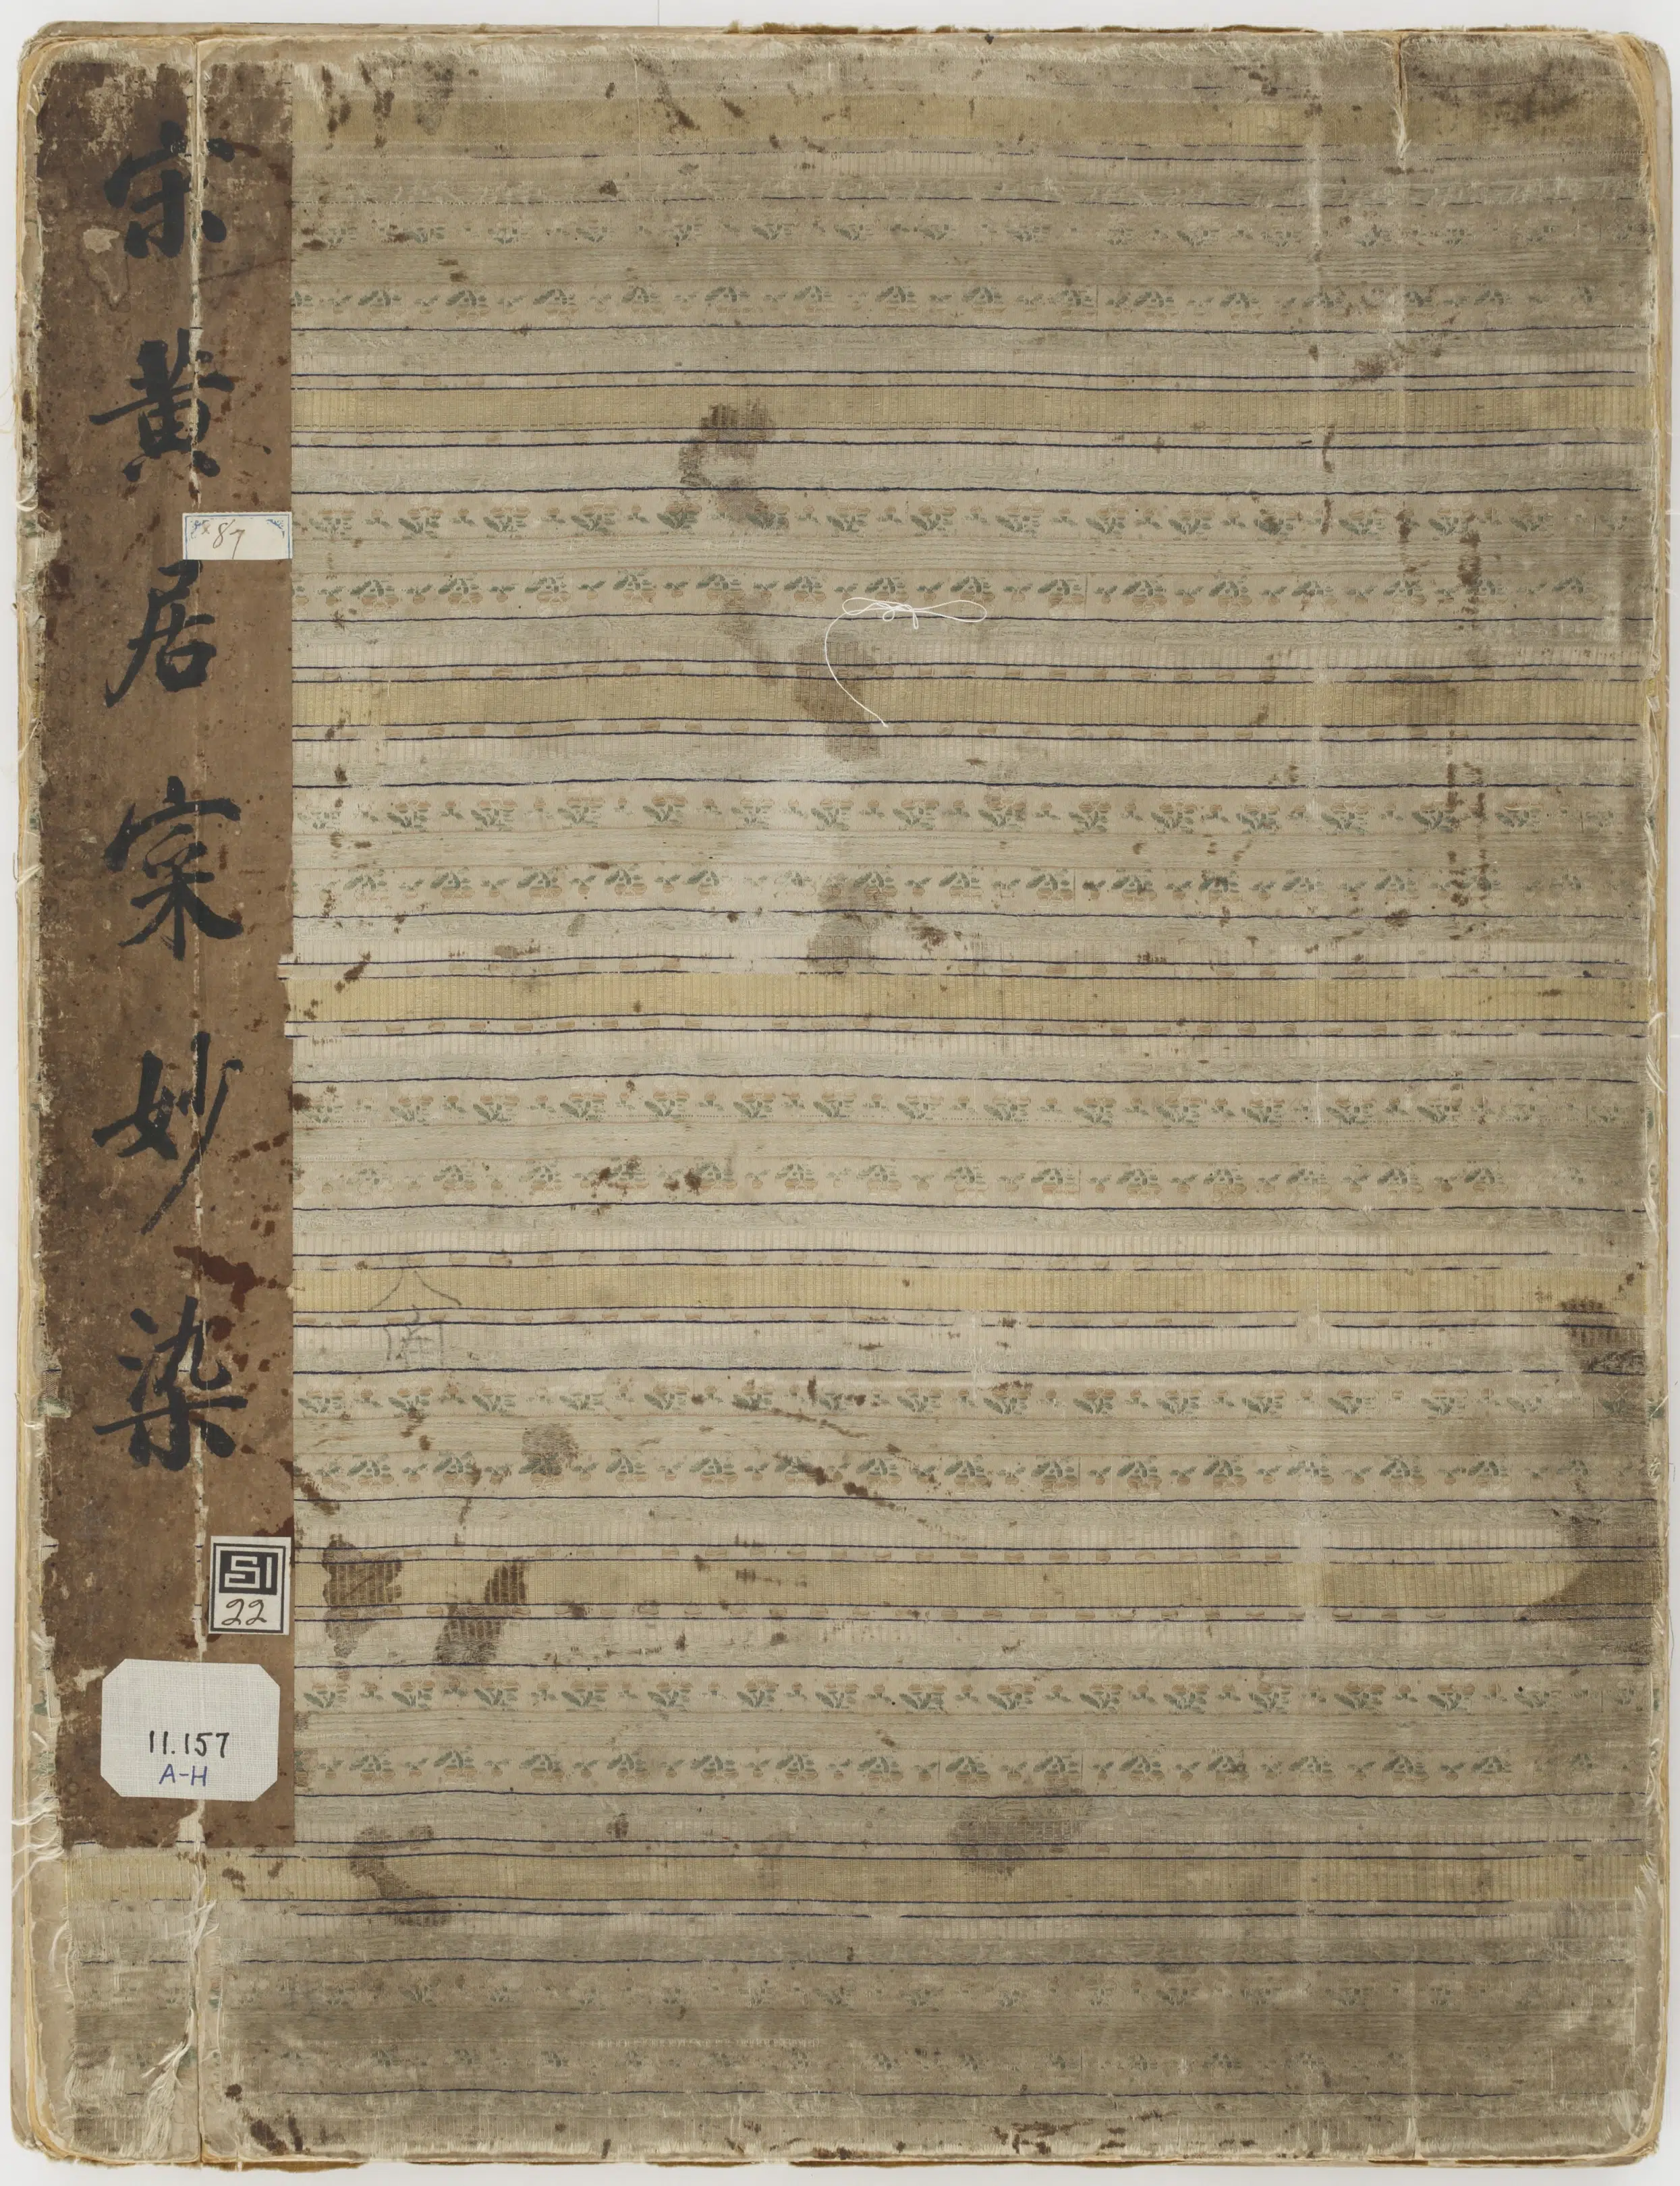 宋黄居寀妙染
87
SI
22
11.157
A-H